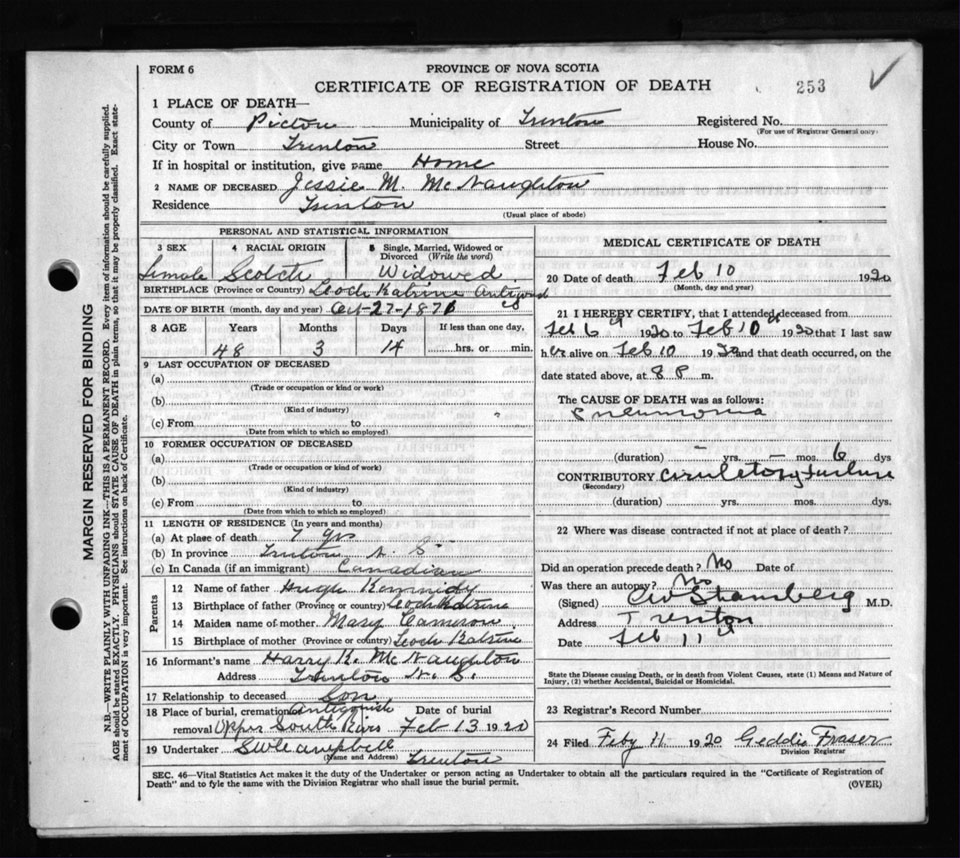 FORM 6
PROVINCE OF NOVA SCOTIA
CERTIFICATE OF REGISTRATION OF DEATH
253
1 PLACE OF DEATH—
County of Pictou Municipality of Trenton Registered No.
(For use of Registrar General only.)
City or Town Trenton Street House No.
If in hospital or institution, give name Home
2 NAME OF DECEASED Jessie M. McNaughton
Residence Trenton
(Usual place of abode)
PERSONAL AND STATISTICAL INFORMATION
3 SEX 4 RACIAL ORIGIN 5 Single, Married, Widowed or Divorced (Write the word)
Female Scotch Widowed
BIRTHPLACE (Province or Country) Loch Katrine
DATE OF BIRTH (month, day and year) Oct-27-1871
8 AGE Years Months Days If less than one day,
48 3 14 hrs. or min.
9 LAST OCCUPATION OF DECEASED
(a)
(Trade or occupation or kind or work)
(b)
(Kind of industry)
(c) From to
(Date from which to which so employed)
10 FORMER OCCUPATION OF DECEASED
(a)
(Trade or occupation or kind of work)
(b)
(Kind of industry)
(c) From to
(Date from which to which so employed)
11 LENGTH OF RESIDENCE (In years and months)
(a) At place of death 7 yrs
(b) In province Trenton N. S.
(c) In Canada (if an immigrant) Canadian
Parents
12 Name of father Hugh Kennidy
13 Birthplace of father (Province or country) Loch Katrine
14 Maiden name of mother Mary Cameron
15 Birthplace of mother (Province or country) Loch Katrine
16 Informant's name Harry K. McNaughton
Address Trenton N. S.
17 Relationship to deceased Son
18 Place of burial, cremation Antigonish Date of burial
removal Upper South River Feb 13 1920
19 Undertaker Campbell
(Name and Address) Trenton
MEDICAL CERTIFICATE OF DEATH
20 Date of death Feb 10 1920
(Month, day and year)
21 I HEREBY CERTIFY, that I attended deceased from
Feb 6th 1920 to Feb 10th 1920 that I last saw
her alive on Feb 10 1920 and that death occurred, on the
date stated above, at 8 P m.
The CAUSE OF DEATH was as follows:
Pneumonia
(duration) - yrs. - mos. 6 dys
CONTRIBUTORY Circulatory Failure
(Secondary)
(duration) yrs. mos. dys.
22 Where was disease contracted if not at place of death?
Did an operation precede death? No Date of
Was there an autopsy? No
(Signed) M.D.
Address Trenton
Date Feb 11
State the Disease causing Death, or in death from Violent Causes, state (1) Means and Nature of
Injury, (2) whether Accidental, Suicidal or Homicidal.
23 Registrar's Record Number
24 Filed Feby 11 1920 Geddie Fraser
Division Registrar
SEC. 46—Vital Statistics Act makes it the duty of the Undertaker or person acting as Undertaker to obtain all the particulars required in the "Certificate of Registration of
Death" and to fyle the same with the Division Registrar who shall issue the burial permit.
(OVER)
MARGIN RESERVED FOR BINDING
N.B.—WRITE PLAINLY WITH UNFADING INK—THIS IS A PERMANENT RECORD. Every item of information should be carefully supplied.
AGE should be stated EXACTLY. PHYSICIANS should STATE CAUSE OF DEATH in plain terms, so that it may be properly classified. Exact state-
ment of OCCUPATION is very important. See instructions on back of Certificate.